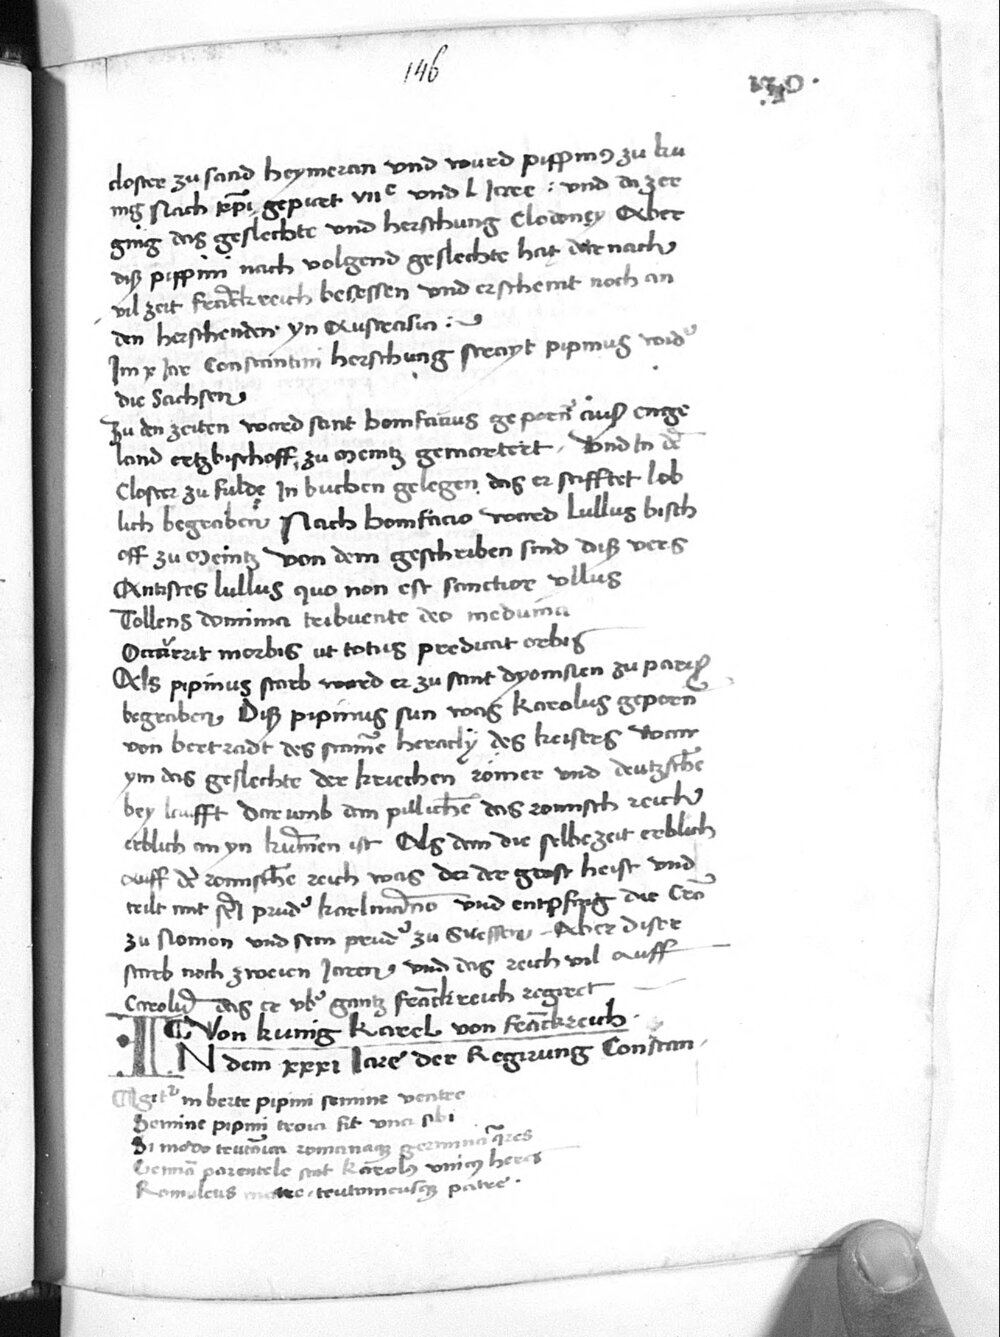 146
closter zu sand heymeran vnd ward pippinus zu ku
nig Nach xpi gepurt viic vnd l Jare : vnd da zer
ging das geslechte vnd herschung Clodouey Aber
diß pippini nach volgend geslechte hat dar nach
vil zeit franckreich besessen vnd erscheint noch an
den herschenden yn Austrasia :
Im x Jar Constantini herschung strayt pipinus wider
die Sachsen
Zu den zeiten ward sant bonifacius geporn auß enge
land ertzbischoff zu Meintz gemartert / Vnd In dem
Closter zu fulde In buchen gelegen das er stifftet lob
lich begraben Nach bonifacio ward lullus bisch
off zu Meintz von dem geschriben sind diß vers
Antistes lullus quo non est sanctior vllus
Tollens domina tribuente deo medicina
Occurrit morbis ut totus predicat orbis
Als pipinus starb ward er zu sant dyonisien zu pariß
begraben Diß pipinus sun was Karolus geporn
von bertradt des stamme heraclij des keisers Wan
ym das geslechte der kriechen römer vnd deutzsche
bey laufft dar umb am pillichen das romisch reich
erblich an yn kummen ist Als dem die selbe zeit erblich
auff dem romische reich was der der groß heist vnd
teilt mit seinem pruder karlmanno vnd entpfing die Cron
zu Nomon vnd sein pruder zu Suessen Aber diser
starb nach zweien Jaren vnd das reich vil auff
Carolum das er vber gantz franckreich regiret
Von kunig Karel von franckreich
IN dem xxxi Jare der Regirung Constan
Igitur in berte pipini semine ventre
Semine pipini troia fit una sibi
Si modo teutonica romanaque germina queres
Gemma parentele stat karolus unicus heres
Romuleus matre teutonicusque patre .